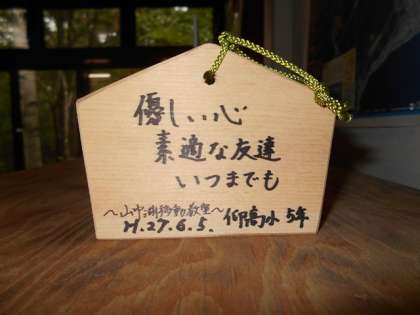 優しい心
素適な友達
いつまでも
～山中湖移動教室～
H.27.6.5. 仰高小 5年